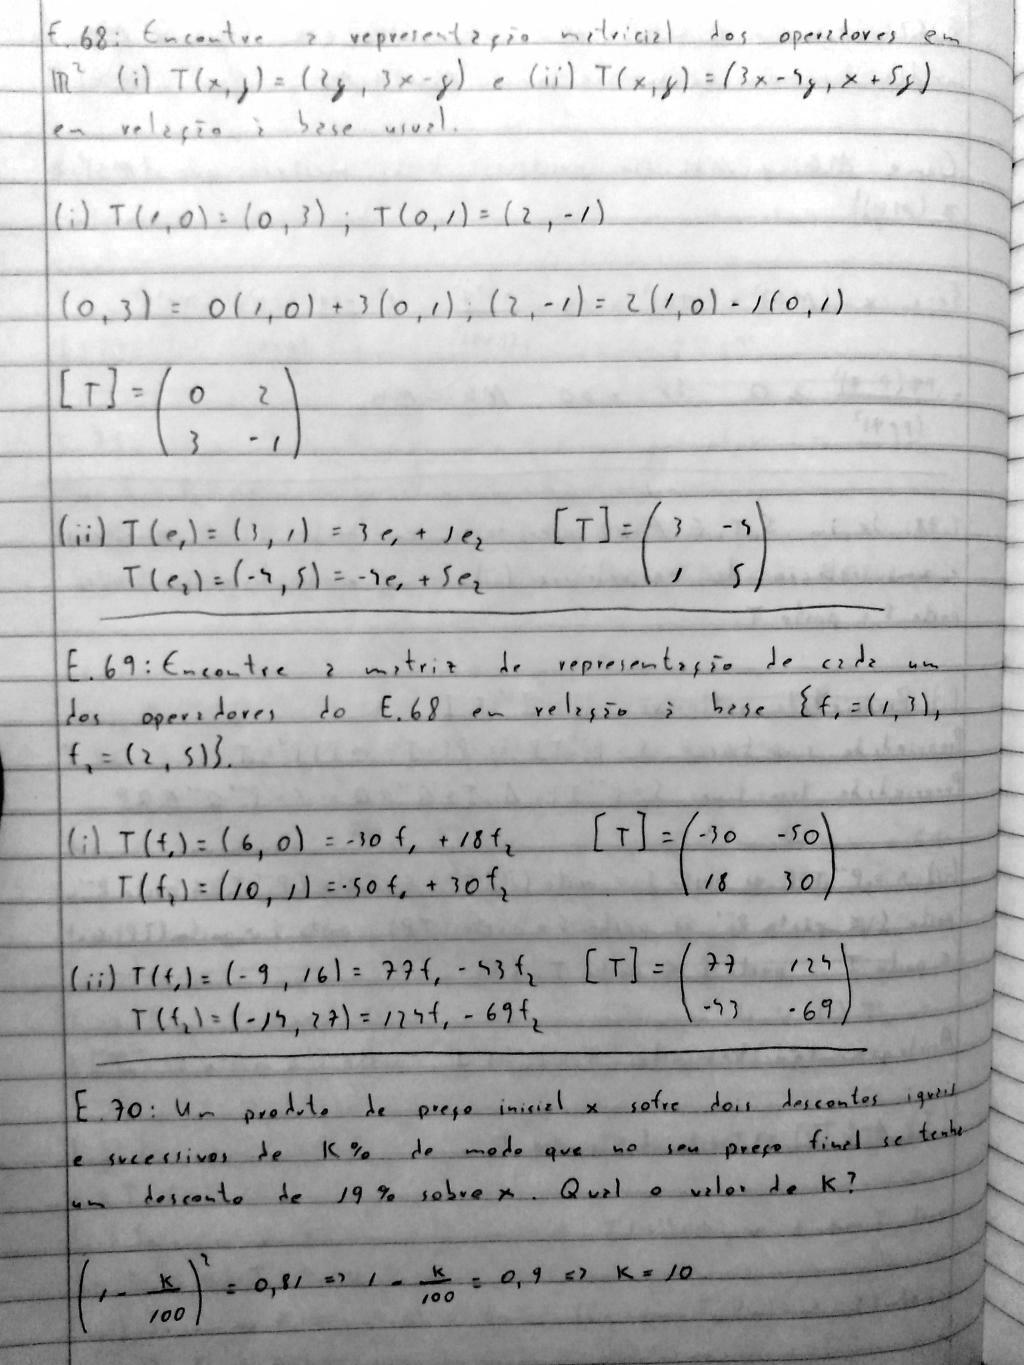 E.68: Encontre a representação matricial dos operadores em
ℝ² (i) T(x,y)=(2y, 3x-y) e (ii) T(x,y)=(3x-4y, x+5y)
em relação à base usual.
(i) T(1,0)=(0,3); T(0,1)=(2,-1)
(0,3) = 0(1,0)+3(0,1); (2,-1)=2(1,0)-1(0,1)
[T]=(0 2
3 -1)
(ii) T(e₁)=(3,1)=3e₁+1e₂ [T]=(3 -4
T(e₂)=(-4,5)=-4e₁+5e₂ 1 5)
E.69: Encontre a matriz de representação de cada um
dos operadores do E.68 em relação à base {f₁=(1,3),
f₂=(2,5)}.
(i) T(f₁)=(6,0)=-30f₁+18f₂ [T]=(-30 -50
T(f₂)=(10,1)=-50f₁+30f₂ 18 30)
(ii) T(f₁)=(-9,16)=77f₁-43f₂ [T]=(77 124
T(f₂)=(-14,27)=124f₁-69f₂ -43 -69)
E.70: Um produto de preço inicial x sofre dois descontos iguais
e sucessivos de K% de modo que no seu preço final se tenha
um desconto de 19% sobre x. Qual o valor de K?
(1 - K/100)² = 0,81 => 1 - K/100 = 0,9 => K = 10